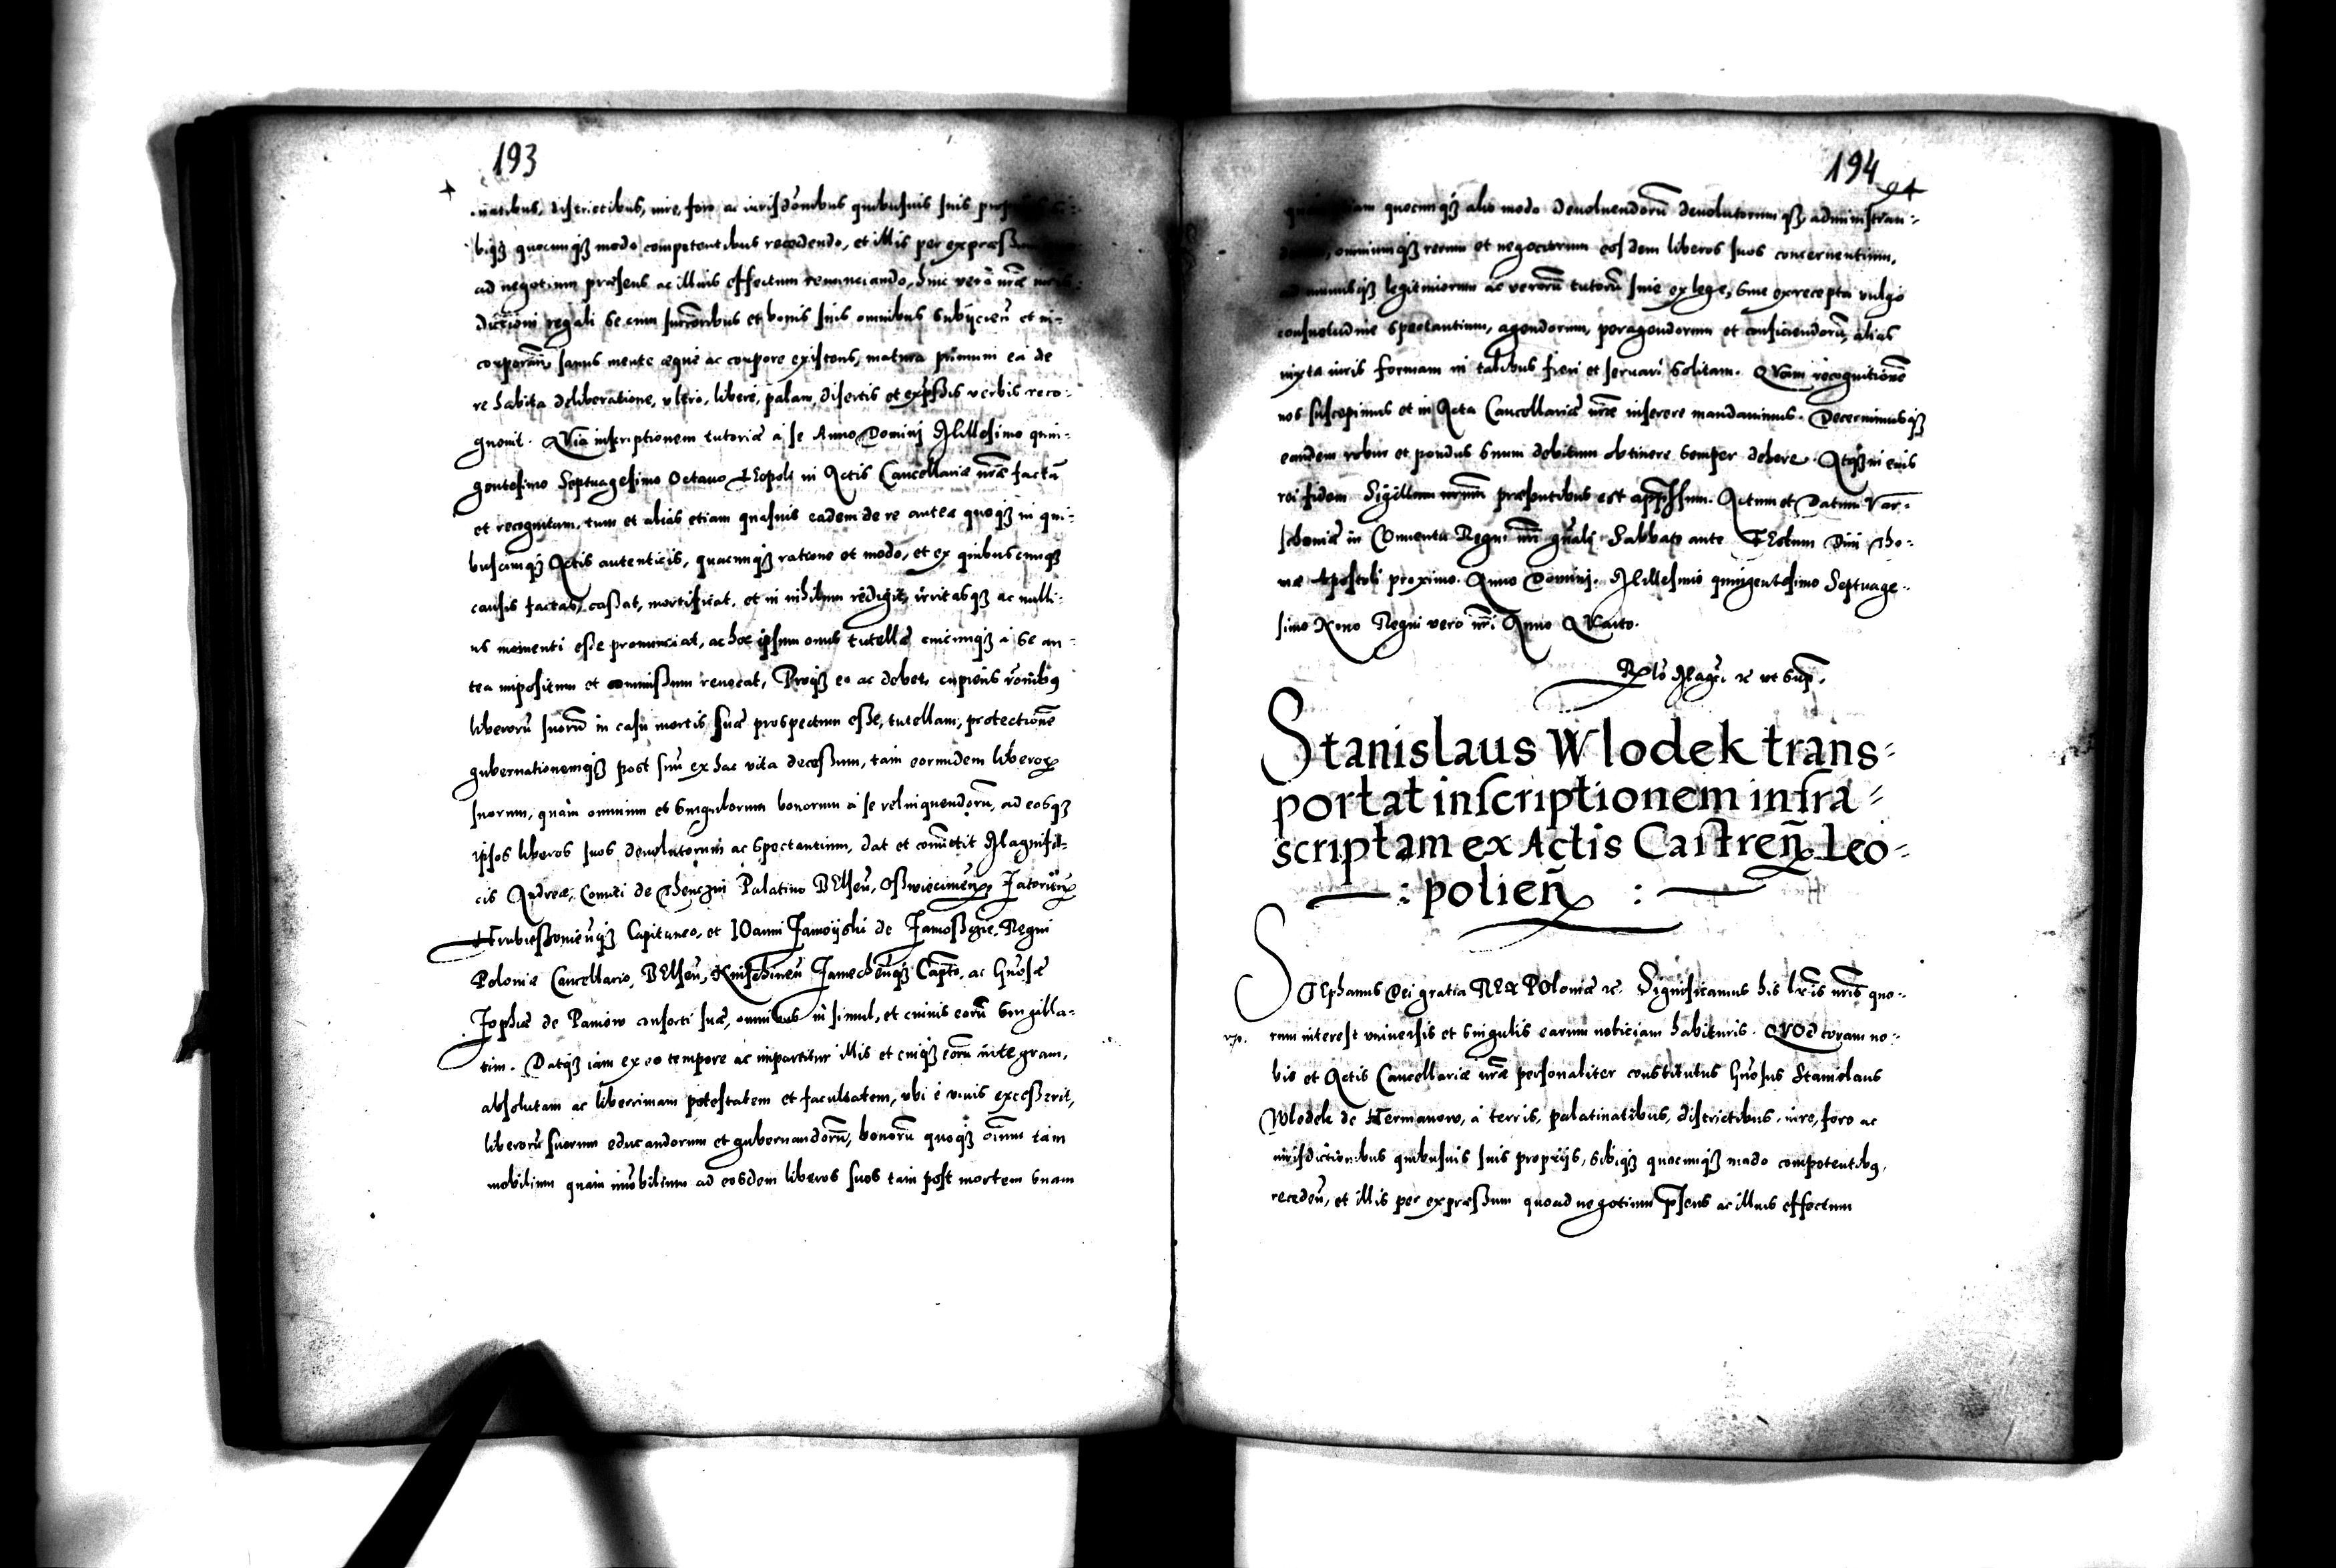 193
natibus, districtibus, iure, foro ac iurisdõnibus quibusuis suis
biqȝ quocunqȝ modo competentibus recedendo, et illis per
ad negotium præsens ac illius effectum renunciando, huic vero nr̃æ
dictioni regali se cum succ̃oribus et bonis suis omnibus subijcien̄ et in-
corporan̄, sanus mente æque ac corpore existens, matura primum ea de
re habita deliberatione, vltro, libere, palam, disertis et exp̃ssis verbis reco-
gnouit. Quia inscriptionem tutoriæ à se Anno Domini Millesimo quin-
gentesimo Septuagesimo Octauo Leopoli in Actis Cancellariæ nr̃æ factã
et recognitam, tum et alias etiam quasuis eadem de re antea quoqȝ in qui-
buscunqȝ Actis autenticis, quacunqȝ ratione et modo, et ex quibuscunqȝ
causis factas, cassat, mortificat, et in nihilum redigit, irritasqȝ ac nulli-
us momenti esse pronunciat, ac hoc ipsum onus tutellæ cuicunqȝ à se an-
tea impositum et commissum reuocat, Proqȝ eo ac debet, cupiens
liberorũ suorũ in casu mortis suæ prospectum esse, tutellam, protectionẽ
gubernationemqȝ post suũ ex hac vita decessum, tam eorundem liberoꝝ
suorum, quàm omnium et singulorum bonorum à se relinquendorũ, ad eosqȝ
ipsos liberos suos deuolutorum ac spectantium, dat et com̃ittit Magnifi-
cis Andreæ, Comiti de Thenczin Palatino Belsen̄,
Hrubieszouien̄qȝ Capitaneo, et Ioanni Zamoyski de Zamosczie, Regni
Poloniæ Cancellario, Belsen̄, Knischinen̄ Zamechen̄qȝ Capt̃o, ac Gñosæ
Zophiæ de Paniow consorti suæ, omnibus in simul, et cuiuis eorũ singilla-
tim. Datqȝ iam ex eo tempore ac impartitur illis et cuiqȝ eorũ integram,
absolutam ac liberrimam potestatem et facultatem, vbi è viuis excesserit,
liberorũ suorum educandorum et gubernandorũ, bonorũ quoqȝ oĩum tàm
mobilium quàm im̃obilium ad eosdem liberos suos tam post mortem suam
194
94
quocunqȝ alio modo deuoluendorũ deuolutorumqȝ administran-
omniumqȝ rerum et negociorum eosdem liberos suos concernentium,
legitimorum ac verorũ tutorũ siue ex lege, siue ex recepta vulgo
consuetudine spectantium, agendorum, peragendorum et conficiendorũ, alias
iuxta iuris formam in talibus fieri et seruari solitam. Quam recognitionẽ
nos suscepimus et in Acta Cancellariæ nr̃æ inserere mandauimus. Decernimusqȝ
eandem robur et pondus suum debitum obtinere semper debere. Atqȝ in euis
rei fidem Sigillum nostrum præsentibus est app̃ssum. Actum et Datum Var-
schouiæ in Conuentu Regni nr̃i gñali Sabbato ante Festum Diui Tho-
mæ Apostoli proximo. Anno Domini. Millesimo quingentesimo Septuage-
simo Nono Regni vero nr̃i Anno Quarto.
Rel̃o Mag̃ci ꝛc vt sup̃.
Stanislaus Wlodek trans-
portat inscriptionem infra-
scriptam ex Actis Castren̄. Leo-
: polien̄ :
Stephanus Dei gratia Rex Poloniæ ꝛc. Significamus his lr̃is nr̃is quo-
rum interest vniuersis et singulis earum noticiam habituris. Quod coram no-
bis et Actis Cancellariæ nr̃æ personaliter constitutus Gñosus Stanislaus
Wlodek de Hermanow, à terris, palatinatibus, districtibus, iure, foro ac
iurisdictionibus quibusuis suis proprijs, sibiqȝ quocunqȝ modo competentibꝰ,
receden̄, et illis per expræssum quoad negotium p̃sens ac illius effectum